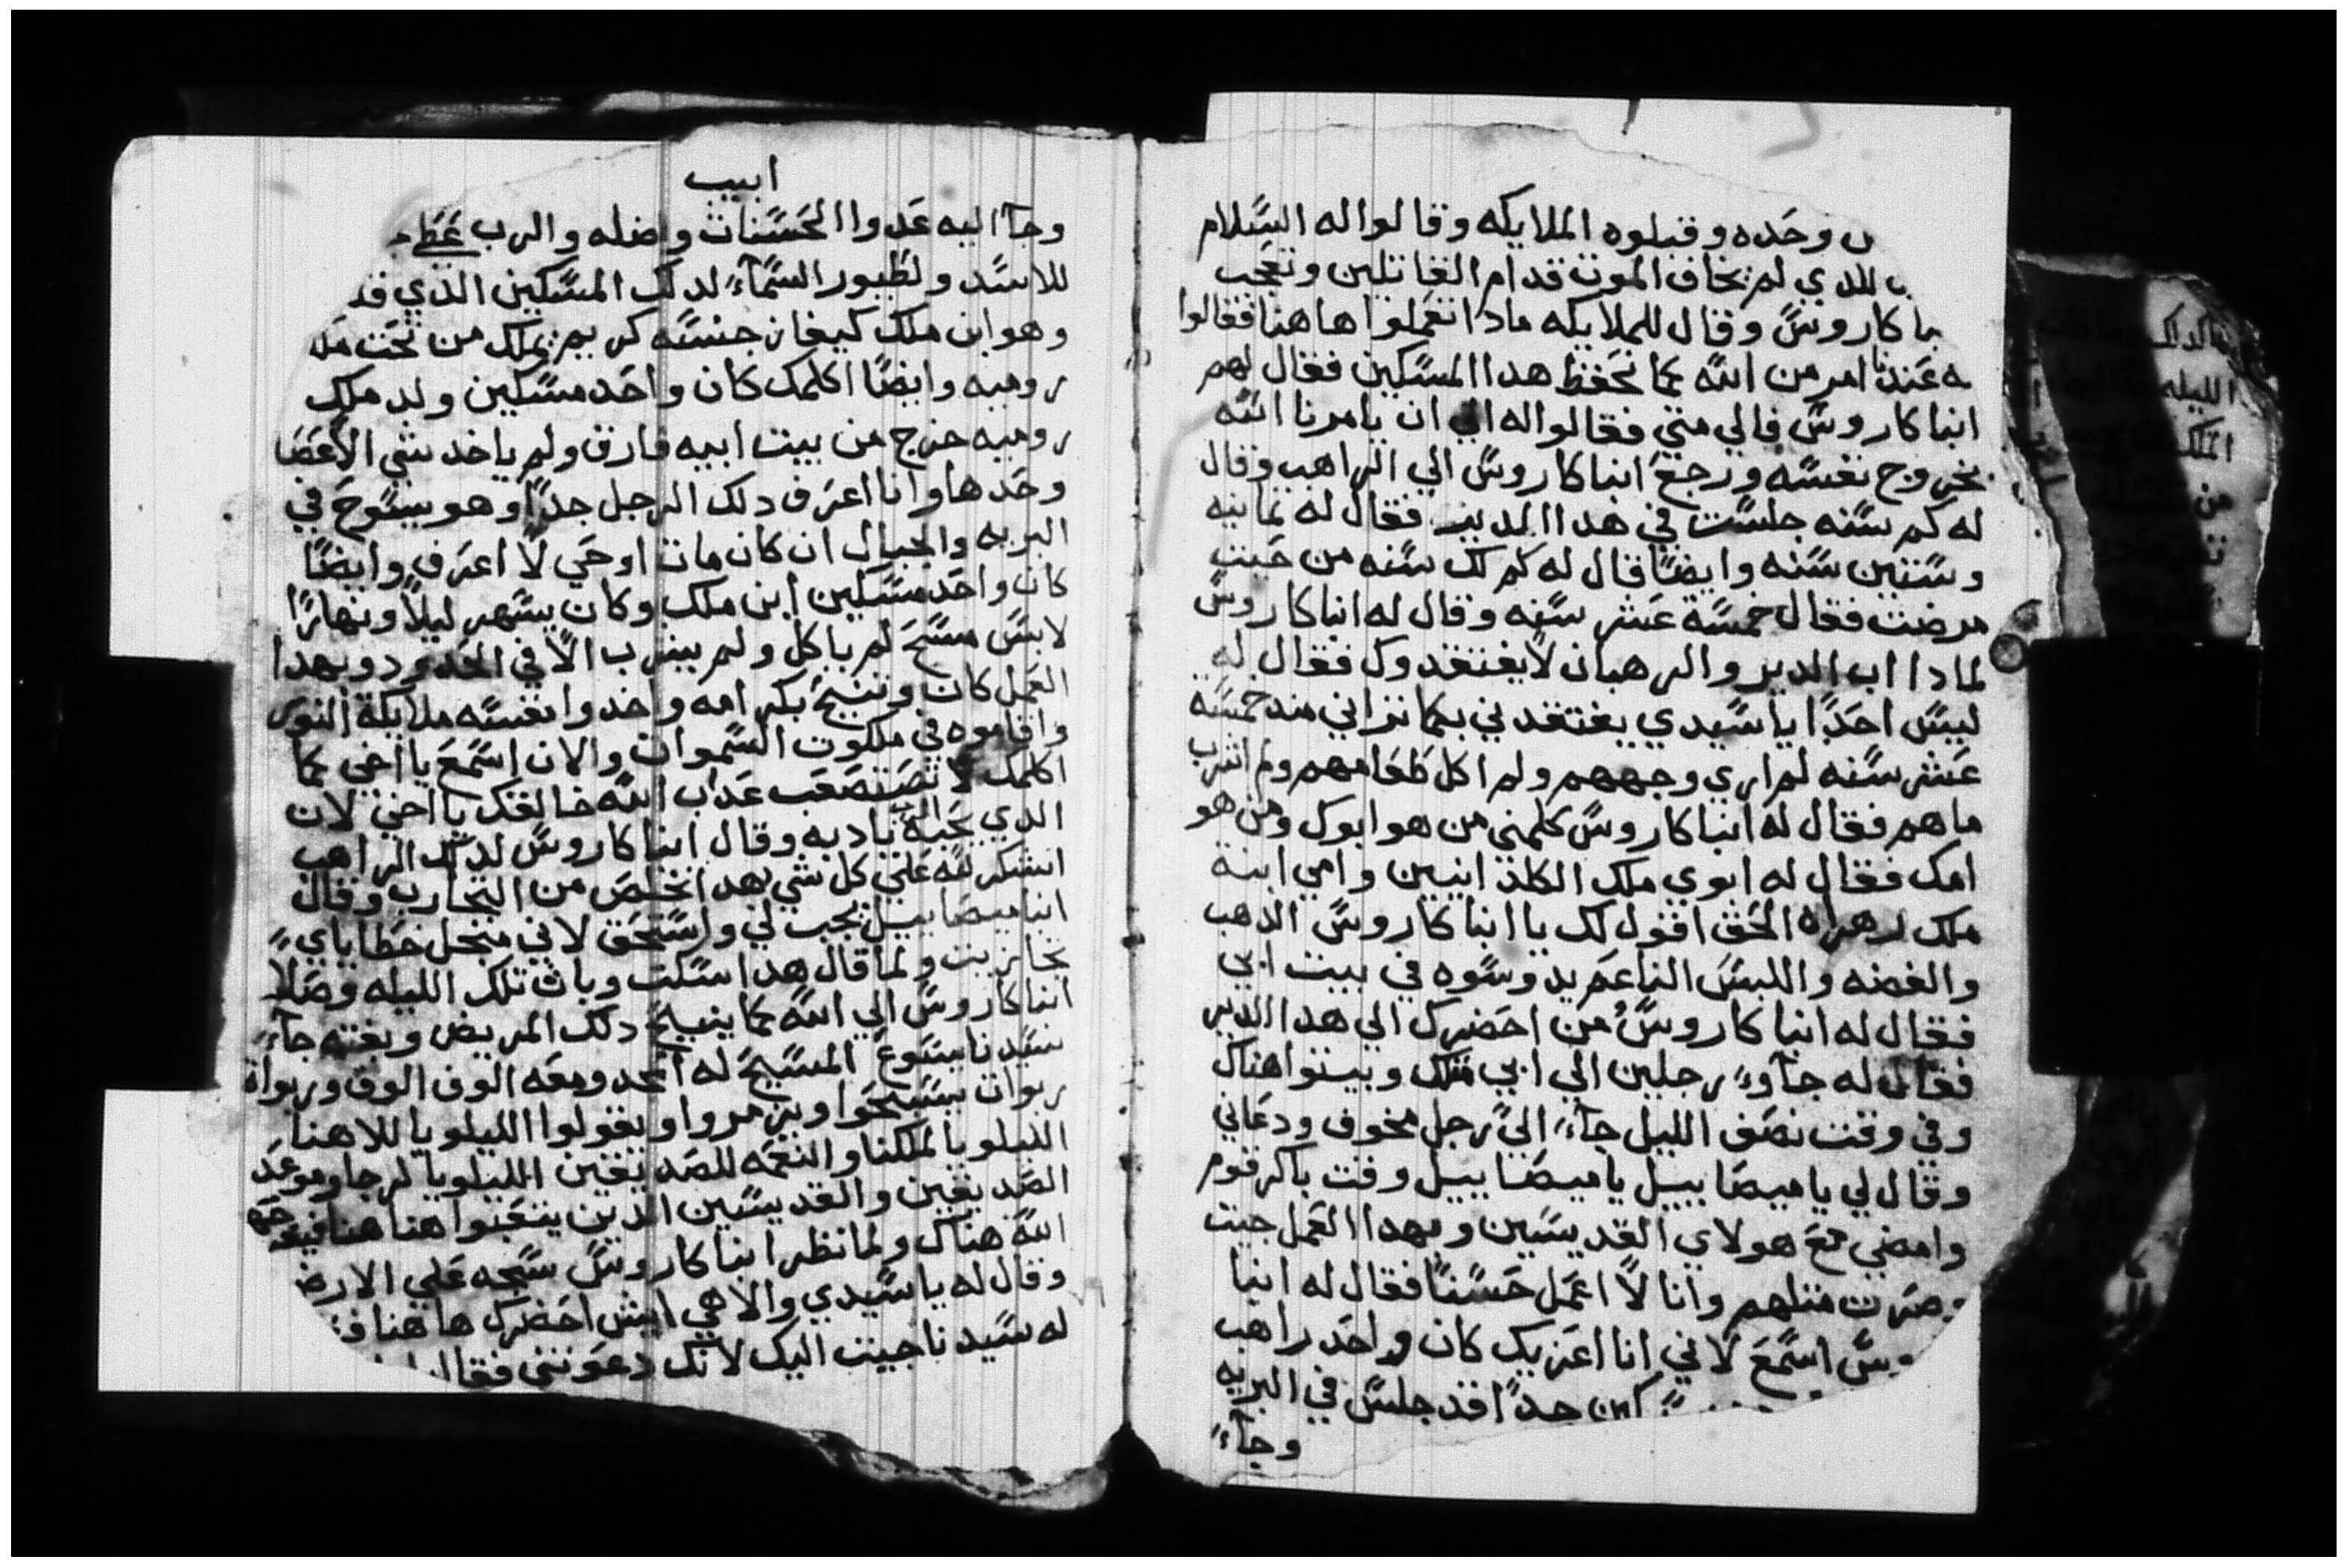 وحده وقبلوه الملايكه وقالوا له السلام
الدي لم يخاف الموت قدام الغاتلين وتعجب
كاروس وقال للملايكه مادا تعملوا هاهنا فقالوا
عندنا امر من الله كما نحفظ هدا المسكين فقال لهم
انبا كاروس فالي متي فقالوا له الي ان يامرنا الله
بخروج نفسه ورجع انبا كاروس الي الراهب وقال
له كم سنه جلست في هدا الدير فقال له تمانيه
وستين سنه وايضا قال له كم لك سنه من حيت
مرضت فقال خمسة عشر سنه وقال له انبا كاروس
لمادا اب الدير والرهبان لا يفتقدوك فقال له
ليس احدا يا سيدي يفتقدني بكما تراني مند خمسة
عشر سنه لم اري وجههم ولم اكل طعامهم ولم اشرب
ماهم فقال له انبا كاروس كلمني من هو ابوك ومن هو
امك فقال له ابوي ملك الكلدانيين وامي ابنة
ملك الحق اقول لك يا انبا كاروس الدهب
والفضه واللبس الناعم يدوسوه في بيت ابي
فقال له انبا كاروس من احضرك الي هدا الدير
فقال له جاوء رجلين الي ابي ملك وبيتوا هناك
وفي وقت نصف الليل جاء الي رجل مخوف ودعاني
وقال لي يا ميصاييل يا ميصاييل وقت باكر قوم
وامضي مع هولاي القديسين وبهدا العمل جيت
وصرت متلهم وانا لا اعمل حسنا فقال له انبا
اسمع لاني انا اعزيك كان واحد راهب
جدا قد جلس في البريه
وجاء
ابيب
وجا اليه عدوا الحسنات واضله والرب
للاسد ولطيور السماء لدلك المسكين الدي قد
وهو ابن ملك كيفان جنسه كريم يملك من تحت
روميه وايضا اكلمك كان واحد مسكين ولد ملك
روميه خرج من بيت ابيه فارق ولم ياخد شي الاعضا
وحدها وانا اعرف دلك الرجل جدا وهو يسوح في
البريه والجبال ان كان مات او حي لا اعرف وايضا
كان واحد مسكين ابن ملك وكان يسهر ليلا ونهارا
لابس مسح لم ياكل ولم يشرب الا في وبهدا
العمل كان وتنيح بكرامه واخدوا نفسه ملايكة النور
واقاموه في ملكوت السموات والان اسمع يا اخي كما
اكلمك لا تصتصعب عداب الله خالقك يا اخي لان
الدي يحبه الرب يادبه وقال انبا كاروس لدلك الراهب
اشكر لله علي كل شي بهدا تخلص من التجارب وقال
انبا ميصاييل يجب لي واستحق لاني من اجل خطاياي
تجازيت ولما قال هدا اسكت وبات تلك الليله وصلا
انبا كاروس الي الله كما ينيح دلك المريض وبغته جاء
سيدنا يسوع المسيح له المجد ومعه الوف الوف وربوات
ربوات يسبحوا ويزمروا ويقولوا الليلويا للاهنا
الليلويا لملكنا والنعمه للصديقين الليلويا لرجا وموعد
الصديقين والقديسين الدين يتعبوا هنا هنا
الله هناك ولما نظر انبا كاروس سجد علي الارض
وقال له يا سيدي والاهي ايش احضرك هاهنا
له سيدنا جيت اليك لانك دعوتني فقال